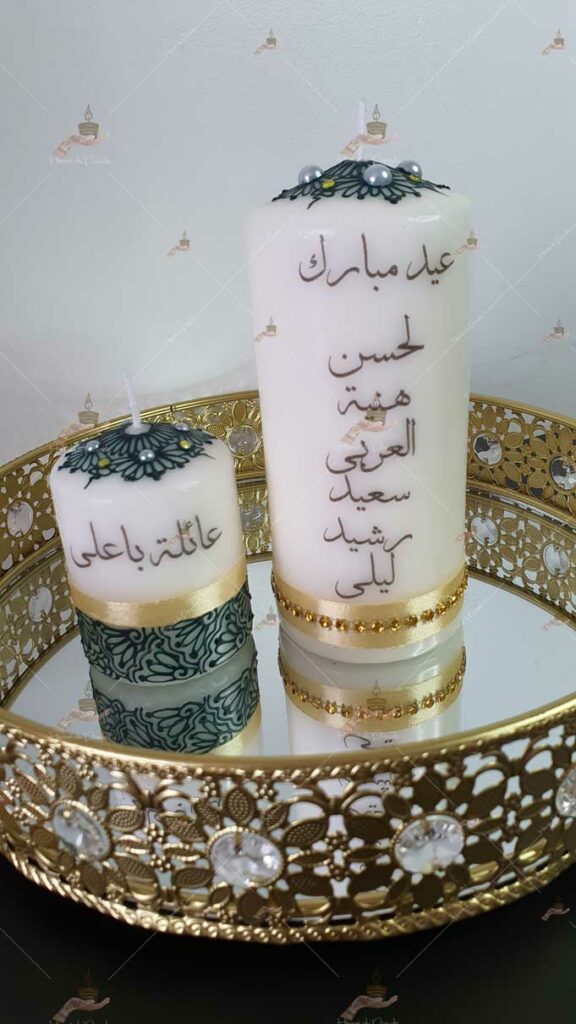 عيد مبارك
لحسن
هنية
العربي
سعيد
رشيد
ليلى
عائلة باعلي